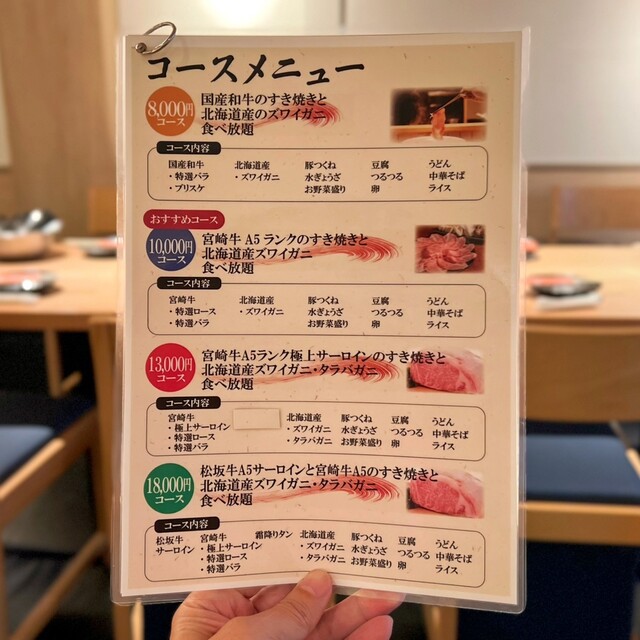 コースメニュー
8,000円
コース
国産和牛のすき焼きと
北海道産のズワイガニ
食べ放題
コース内容
国産和牛 北海道産 豚つくね 豆腐 うどん
・特選バラ ・ズワイガニ 水ぎょうざ つるつる 中華そば
・ブリスケ お野菜盛り 卵 ライス
おすすめコース
10,000円
コース
宮崎牛 A5 ランクのすき焼きと
北海道産ズワイガニ
食べ放題
コース内容
宮崎牛 北海道産 豚つくね 豆腐 うどん
・特選ロース ・ズワイガニ 水ぎょうざ つるつる 中華そば
・特選バラ お野菜盛り 卵 ライス
13,000円
コース
宮崎牛A5ランク極上サーロインのすき焼きと
北海道産ズワイガニ・タラバガニ
食べ放題
コース内容
宮崎牛 北海道産 豚つくね 豆腐 うどん
・極上サーロイン ・ズワイガニ 水ぎょうざ つるつる 中華そば
・特選ロース ・タラバガニ お野菜盛り 卵 ライス
・特選バラ
18,000円
コース
松坂牛A5サーロインと宮崎牛A5のすき焼きと
北海道産ズワイガニ・タラバガニ
食べ放題
コース内容
松坂牛 宮崎牛 霜降りタン 北海道産 豚つくね 豆腐 うどん
サーロイン ・極上サーロイン ・ズワイガニ 水ぎょうざ つるつる 中華そば
・特選ロース ・タラバガニ お野菜盛り 卵 ライス
・特選バラ